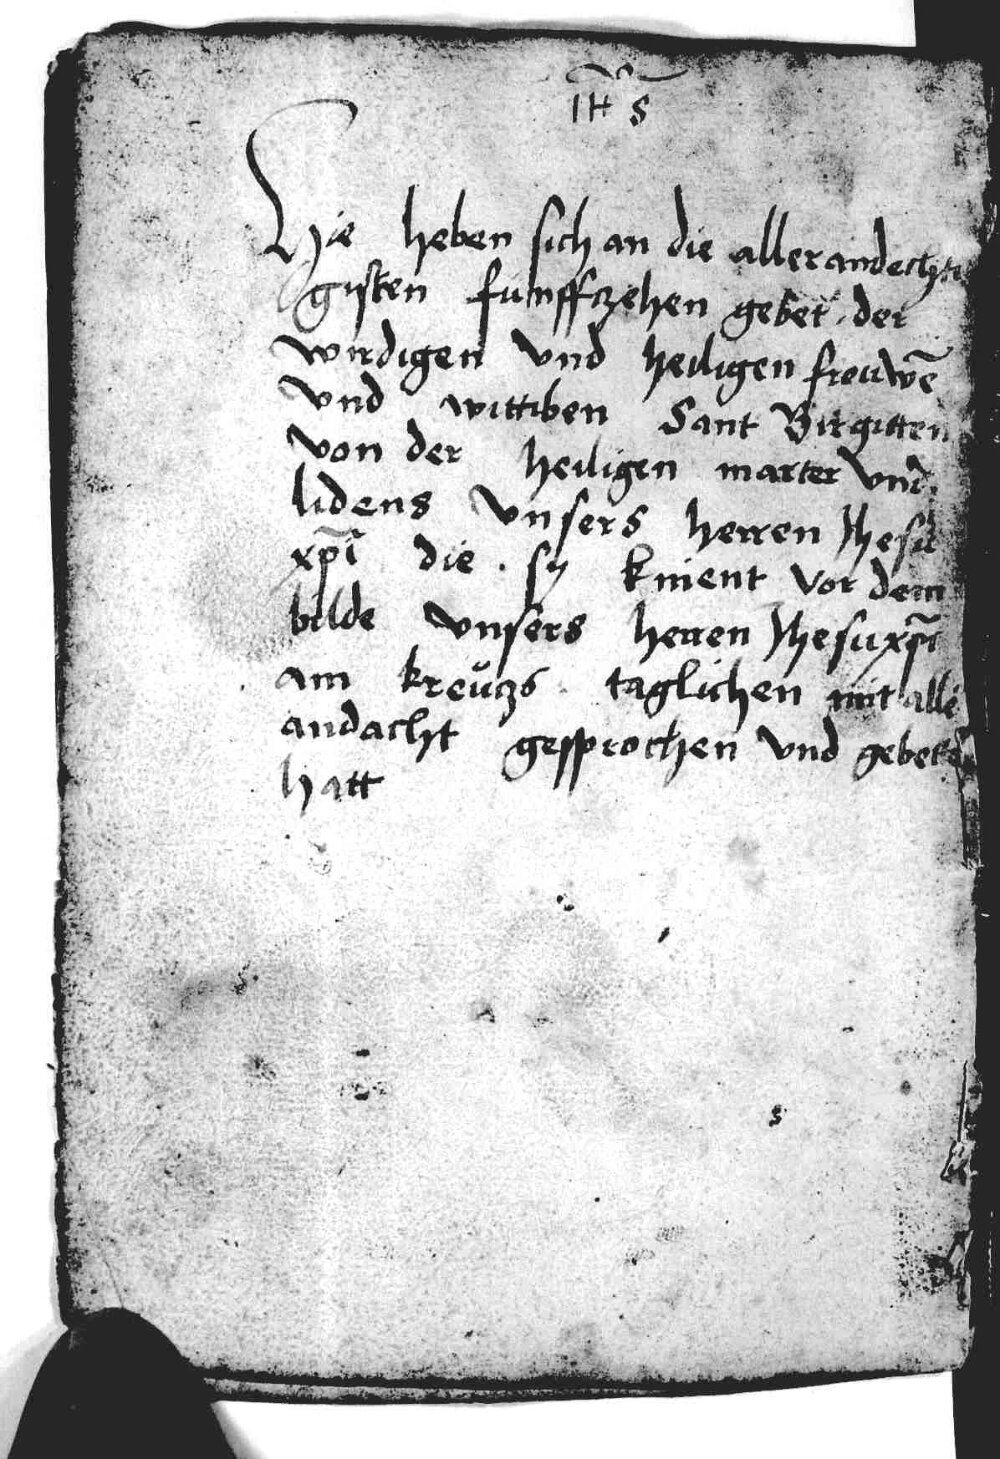 IHS
Hie heben sich an die allerandechti
gisten funffczehen gebet der
wirdigen vnd heiligen frouwē
vnd wittiben Sant Birgitten
von der heiligen marter vnd
lidens vnsers herren Jhesu
xp̄i die . sy knient vor dem
bilde vnsers herren Jhesu xp̄i
am kreŭczs taglichen mit alle
andacht gessprochen vnd gebette
hatt